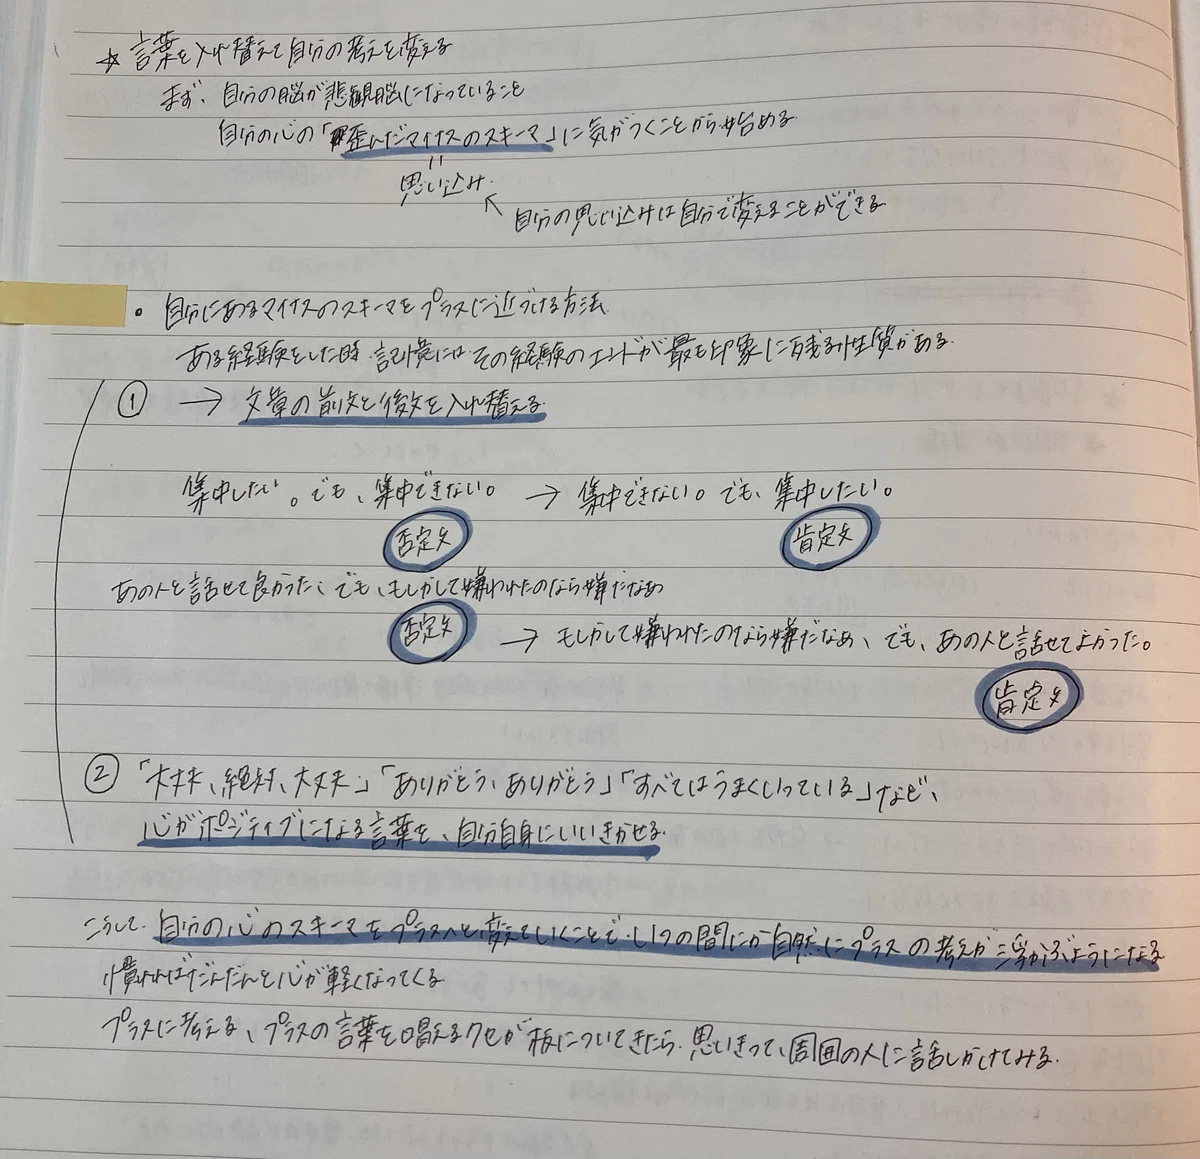 ☆ 言葉を入れ替えて自分の考えを変える
まず、自分の脳が悲観脳になっていること
自分の心の「歪んだマイナスのスキーマ」に気がつくことから始める
〃
思い込み.
↖ 自分の思い込みは自分で変えることができる
・自分にあるマイナスのスキーマをプラスに近づける方法
ある経験をした時、記憶にはその経験のエンドが最も印象に残る性質がある.
① → 文章の前文と後文を入れ替える
集中したい。でも、集中できない。 → 集中できない。でも、集中したい。
否定文 肯定文
あの人と話せて良かった、でも、もしかして嫌われたのなら嫌だなぁ
否定文 → もしかして嫌われたのなら嫌だなぁ、でも、あの人と話せてよかった。
肯定文
② 「大丈夫、絶対、大丈夫」「ありがとう、ありがとう」「すべてはうまくいっている」など、
心がポジティブになる言葉を、自分自身にいいきかせる.
こうして、自分の心のスキーマをプラスへと変えていくことで、いつの間にか自然にプラスの考えが浮かぶようになる
慣れればだんだんと心が軽くなってくる
プラスに考える、プラスの言葉を唱えるクセが板についてきたら、思いきって、周囲の人に話しかけてみる.